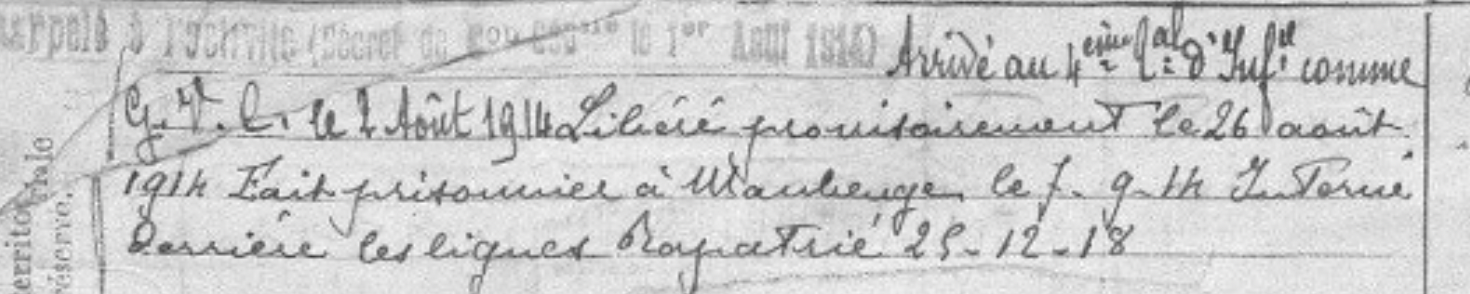 Rappelé à l'activité (Décret de Mon Gérale le 1er Août 1914) Arrivé au 4eme Ral d'Inf.ie comme
G. V. C. le 2 Août 1914 Libéré provisoirement le 26 août
1914 Fait prisonnier à Maubeuge le 7-9-14 Interné
derrière les lignes Rapatrié 25-12-18
erritoriale
réserve.